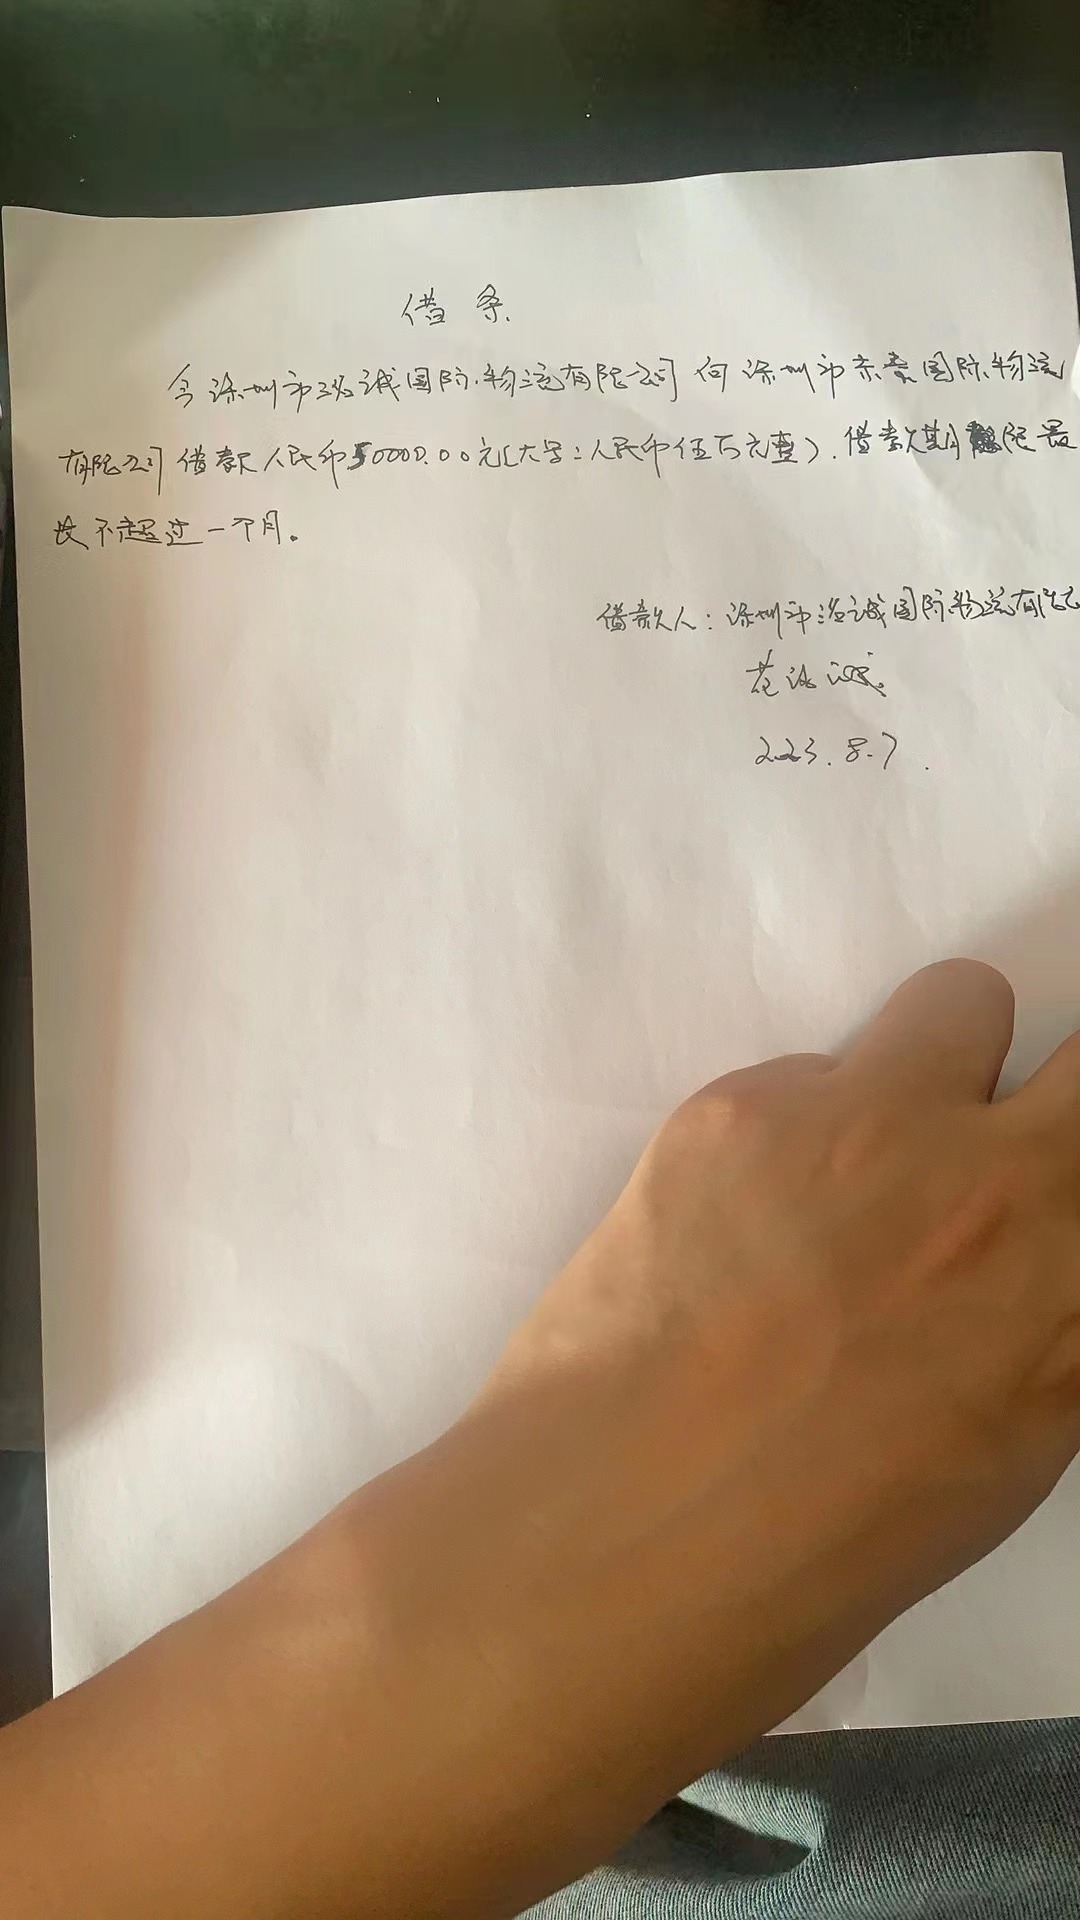 借条
今深圳市洺诚国际物流有限公司向深圳市东素国际物流
有限公司借款人民币50000.00元(大写:人民币伍万元整).借款期限最
长不超过一个月。
借款人:深圳市洺诚国际物流有限公
范
223.8.7